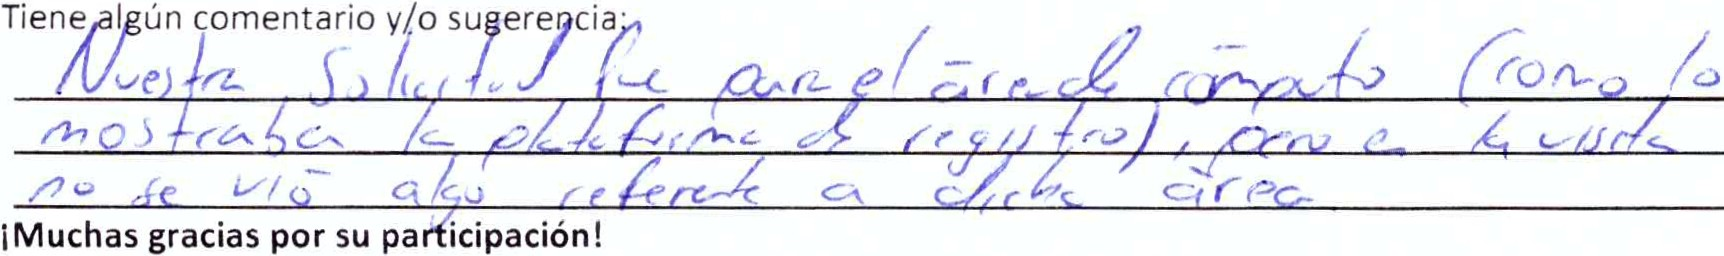 Tiene algún comentario y/o sugerencia:
Nuestra solicitud fue para el área de cómputo (como lo
mostraba la plataforma de registro), pero en la visita
no se vió algo referente a dicha área
¡Muchas gracias por su participación!